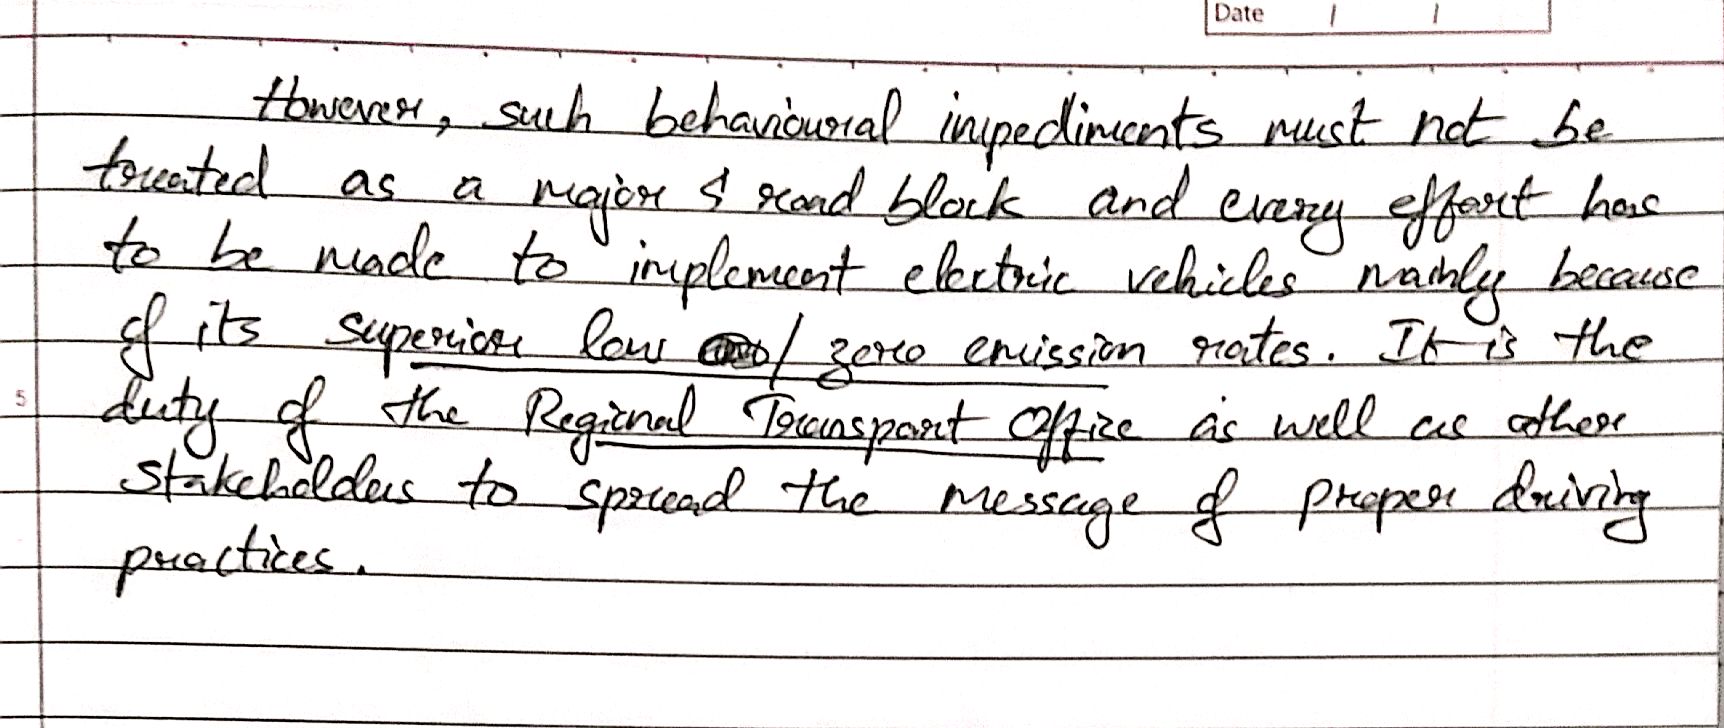 Date / /
However, such behavioural impediments must not be
treated as a major road block and every effort has
to be made to implement electric vehicles mainly because
of its superior low / zero emission rates. It is the
5 duty of the Regional Transport Office as well as other
stakeholders to spread the message of proper driving
practices.